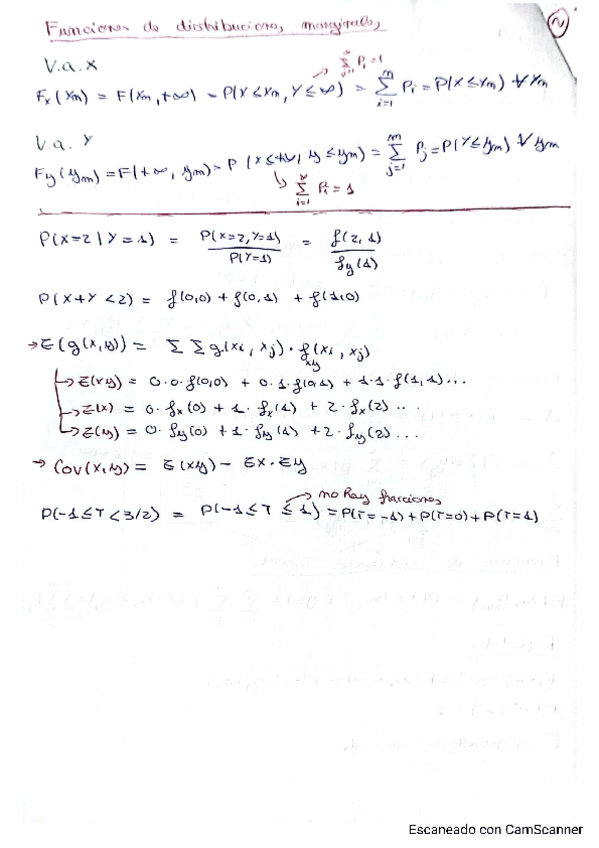 Funciones de distribuciones marginales
2
V.a. X
Σ Pj = 1
Fx(xm) = F(xm, +∞) = P(X ≤ xm, Y ≤ ∞) = Σ Pi = P(X ≤ xm) ∀ xm
V.a. Y
Fy(ym) = F(+∞, ym) = P(x ≤ +∞, y ≤ ym) = Σ Pj = P(Y ≤ ym) ∀ ym
Σ Pi = 1
P(X=2 | Y=1) = P(X=2, Y=1) / P(Y=1) = f(2,1) / fy(1)
P(X+Y < 2) = f(0,0) + f(0,1) + f(1,0)
→ E(g(x,y)) = Σ Σ g(xi, xj) · fxy(xi, xj)
→ E(xy) = 0·0·f(0,0) + 0·1·f(0,1) + 1·1·f(1,1)...
→ E(x) = 0·fx(0) + 1·fx(1) + 2·fx(2)...
→ E(y) = 0·fy(0) + 1·fy(1) + 2·fy(2)...
→ Cov(x,y) = E(xy) - Ex·Ey
→ no hay fracciones
P(-1 ≤ T < 3/2) = P(-1 ≤ T ≤ 1) = P(T=-1) + P(T=0) + P(T=1)
Escaneado con CamScanner